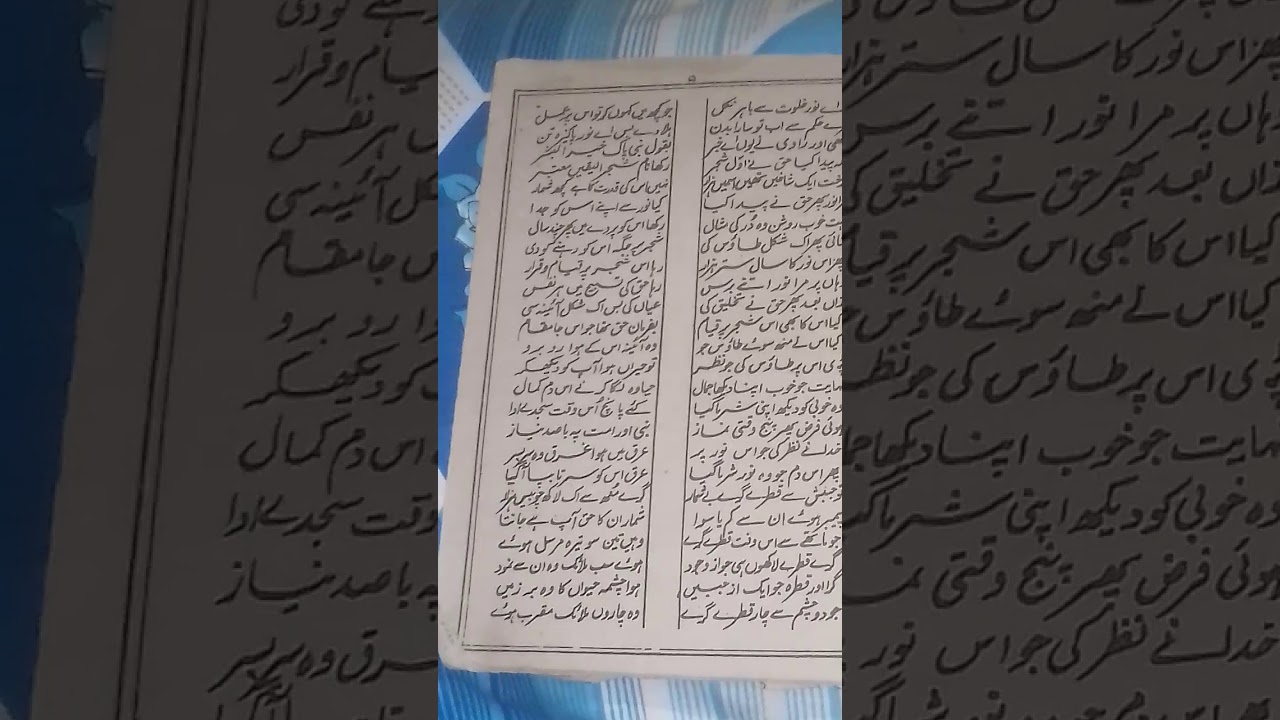 ۵
اے نور خلوت سے باہر نکل جو کچھ میں کہوں کر تو اس پر عمل
ے حکم سے اب تو سارا بدن ہلا دے بس اے نور پاکیزہ تن
بھی اور راوی نے یوں نے خبر بقول نبی پاک خیر البشر
ہ پیدا کیا حق نے اوّل شجر رکھا نام شجر الیقیں معتبر
ایک شاخیں تھیں اسمیں ہزار نہیں اس کی قدرت کا ہے کچھ شمار
نور پھر حق نے پیدا کیا کیا نور سے اپنے اس کو جدا
خوب روشن وہ دُر کی مثال رکھا اس کو پردے میں پھر چند سال
ائی پھر اک شکل طاؤس کی شجر پر جگہ اس کو رہنے کو دی
پھر اس نور کا سال ستر ہزار رہا اس شجر پر قیام و قرار
ہاں پر مرا نور اتنے برس رہا حق کی تسبیح میں ہر نفس
زاں بعد پھر حق نے تخلیق کی عیاں کی بس اک شکل آئینہ سی
کیا اس کا بھی اس شجر پر قیام بفرمان حق تھا جو اس جا مقام
کیا اس نے منھ سوئے طاؤس جو وہ آئینہ اس کے ہوا رو برو
ی اس پر طاؤس کی جو نظر تو حیراں ہوا آپ کو دیکھکر
نہایت جو خوب اپنا دیکھا جمال حیا وہ لگا کرنے اس دم کمال
وہ خوبی کو دیکھ اپنی شرما گیا کئے پانچ اُس وقت سجدے ادا
ہوئی فرض پھر پنج وقتی نماز نبی اور امت پہ باصد نیاز
خدا نے نظر کی جو اس نور پر عرق میں ہوا غرق وہ سر بسر
پھر اس دم جو وہ نور شرما گیا عرق اس کو سر تا بپا آ گیا
تو جنبش سے قطرے گرے بے شمار گرے منھ سے اک لاکھ چوبیس ہزار
پیمبر ہوئے ان سے کم یا سوا شمار ان کا حق آپ ہے جانتا
جو ماتھے سے اس وقت قطرے گرے وہیں تین سو تیرہ مرسل ہوئے
گرے قطرے لاکھوں ہی جو از وجود ہوئے سب ملائک وہ ان سے نمود
گرا اور قطرہ جو ایک از جبیں ہوا چشمہ حیواں کا وہ بر زمیں
جو دو چشم سے چار قطرے گرے وہ چاروں ملائک مقرب ہوئے